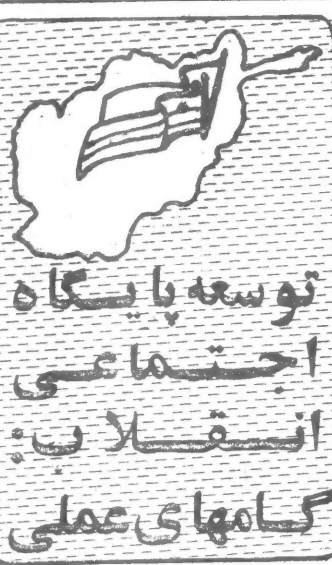 توسعه پایگاه
اجتماعی
انقلاب:
گامهای عملی